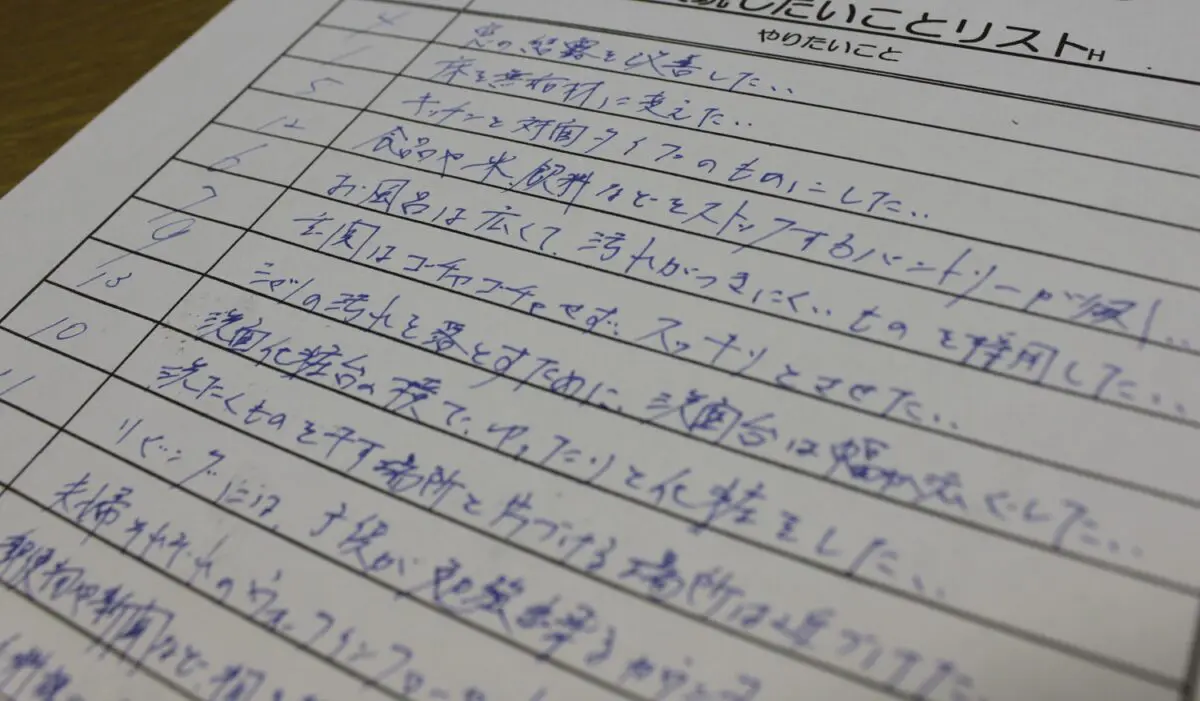 したいことリストH
やりたいこと
4 窓の結露を改善したい
1 床を無垢材に変えたい
5 キッチンを対面タイプのものにしたい
12 食品や米、飲料などをストックするパントリーが欲しい
6 お風呂は広くて、汚れがつきにくいものを採用したい
7 玄関はゴチャゴチャせず、スッキリとさせたい
9 シャツの汚れを落とすために、洗面台は幅が広くしたい
13 洗面化粧台の横で、ゆったりと化粧をしたい
10 洗たくものを干す場所と片づける場所は近づけたい
11 リビングには、子供が勉強
夫婦それぞれのウォークインクローゼット
郵便物や新聞など